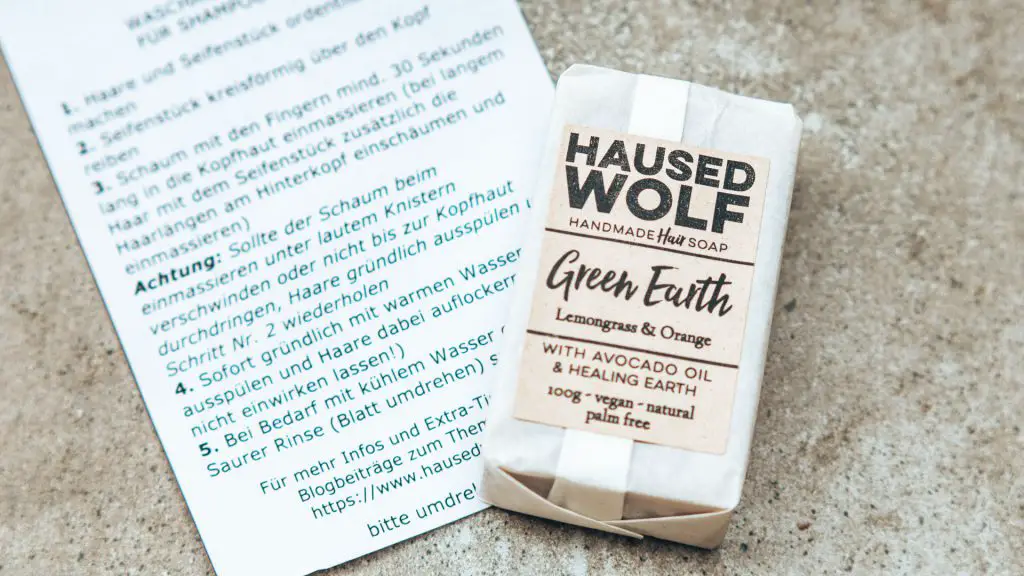 FÜR SHAMPOO
1. Haare und Seifenstück
machen
2. Seifenstück kreisförmig über den Kopf
reiben
3. Schaum mit den Fingern mind. 30 Sekunden
lang in die Kopfhaut einmassieren (bei langem
Haar mit dem Seifenstück zusätzlich die
Haarlängen am Hinterkopf einschäumen und
einmassieren)
Achtung: Sollte der Schaum beim
einmassieren unter lautem Knistern
verschwinden oder nicht bis zur Kopfhaut
durchdringen, Haare gründlich ausspülen
Schritt Nr. 2 wiederholen
4. Sofort gründlich mit warmen Wasser
ausspülen und Haare dabei auflockern
nicht einwirken lassen!)
5. Bei Bedarf mit kühlem Wasser
Saurer Rinse (Blatt umdrehen)
Für mehr Infos und Extra-Ti
Blogbeiträge zum Them
https://www.haused
bitte umdre
HAUSED
WOLF
HANDMADE Hair SOAP
Green Earth
Lemongrass & Orange
WITH AVOCADO OIL
& HEALING EARTH
100g - vegan - natural
palm free